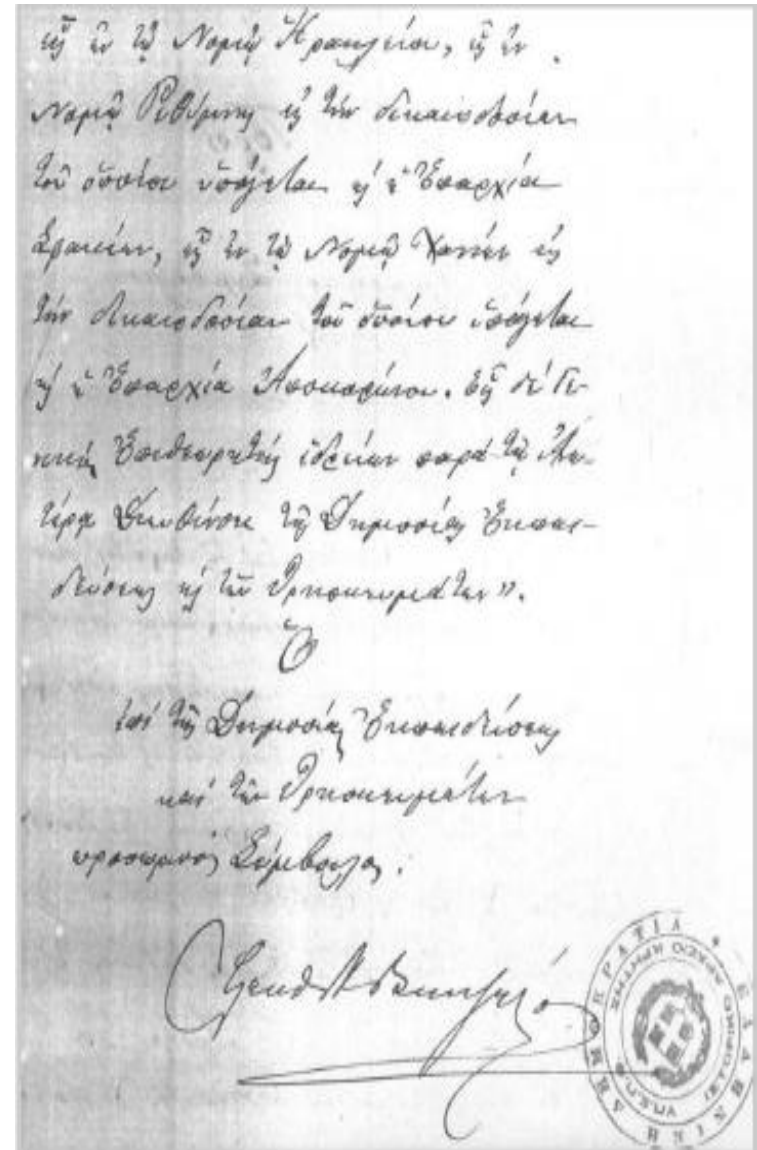 εἷς ἐν τῷ Νομῷ Ἡρακλείου, εἷς ἐν
Νομῷ Ρεθύμνης εἰς τὴν δικαιοδοσίαν
τοῦ ὁποίου ὑπάγεται καὶ ἡ Ἐπαρχία
Σφακίων, εἷς ἐν τῷ Νομῷ Χανίων εἰς
τὴν δικαιοδοσίαν τοῦ ὁποίου ὑπάγεται
καὶ ἡ Ἐπαρχία Ἀποκορώνου. Εἷς δὲ Γε-
νικὸς Ἐπιθεωρητὴς ἑδρεύων παρὰ τῇ Ἀνω-
τέρᾳ Διευθύνσει τῆς Δημοσίας Ἐκπαι-
δεύσεως καὶ τῶν Θρησκευμάτων".
Ὁ
ἐπὶ τῆς Δημοσίας Ἐκπαιδεύσεως
καὶ τῶν Θρησκευμάτων
προσωρινὸς Σύμβουλος.
ΕΛΛΗΝΙΚΗ ΔΗΜΟΚΡΑΤΙΑ
ΙΣΤΟΡΙΚΟ ΑΡΧΕΙΟ ΚΡΗΤΗΣ